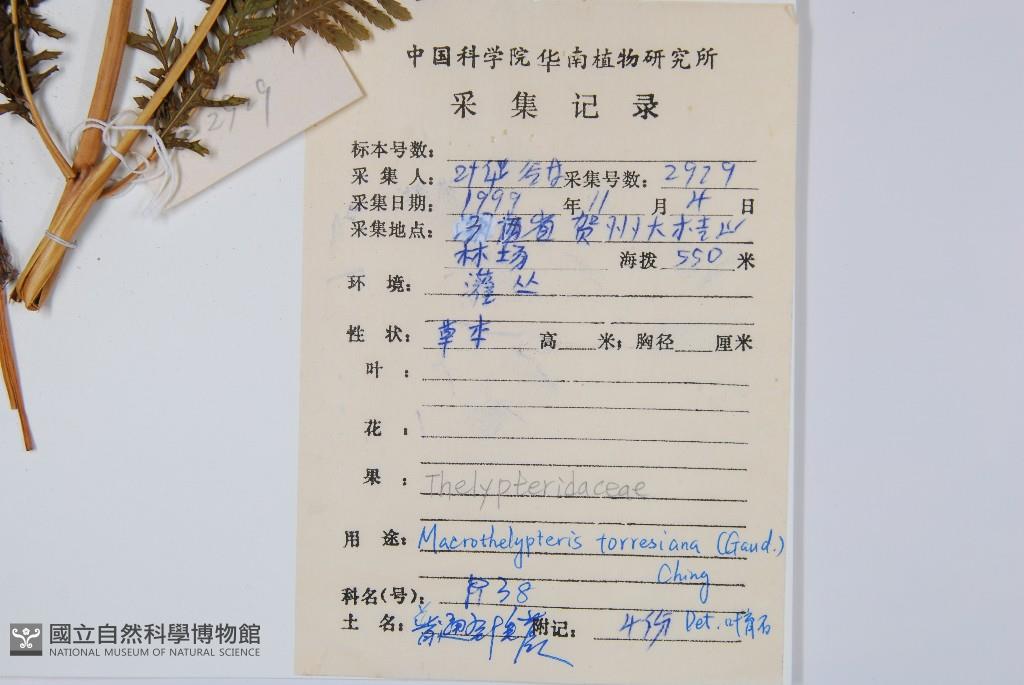 中国科学院华南植物研究所
采集记录
2929
标本号数:
采集人: 叶华谷 采集号数: 2929
采集日期: 1999 年 11 月 4 日
采集地点: 省贺州大桂山
林场 海拨 550 米
环境: 灌丛
性状: 草本 高 米; 胸径 厘米
叶:
花:
果: Thelypteridaceae
用途: Macrothelypteris torresiana (Gaud.)
Ching
科名(号): P38
土名: 普通 附记: 4份 Det. 叶育石
國立自然科學博物館
NATIONAL MUSEUM OF NATURAL SCIENCE